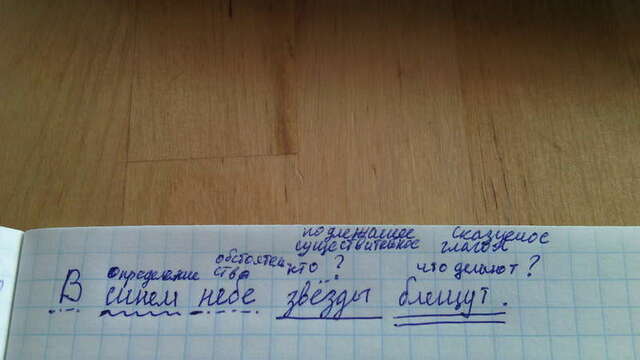 подлежащее сказуемое
существительное глагол
определение обстоятель-
ства кто ? что делают ?
В синем небе звёзды блещут.